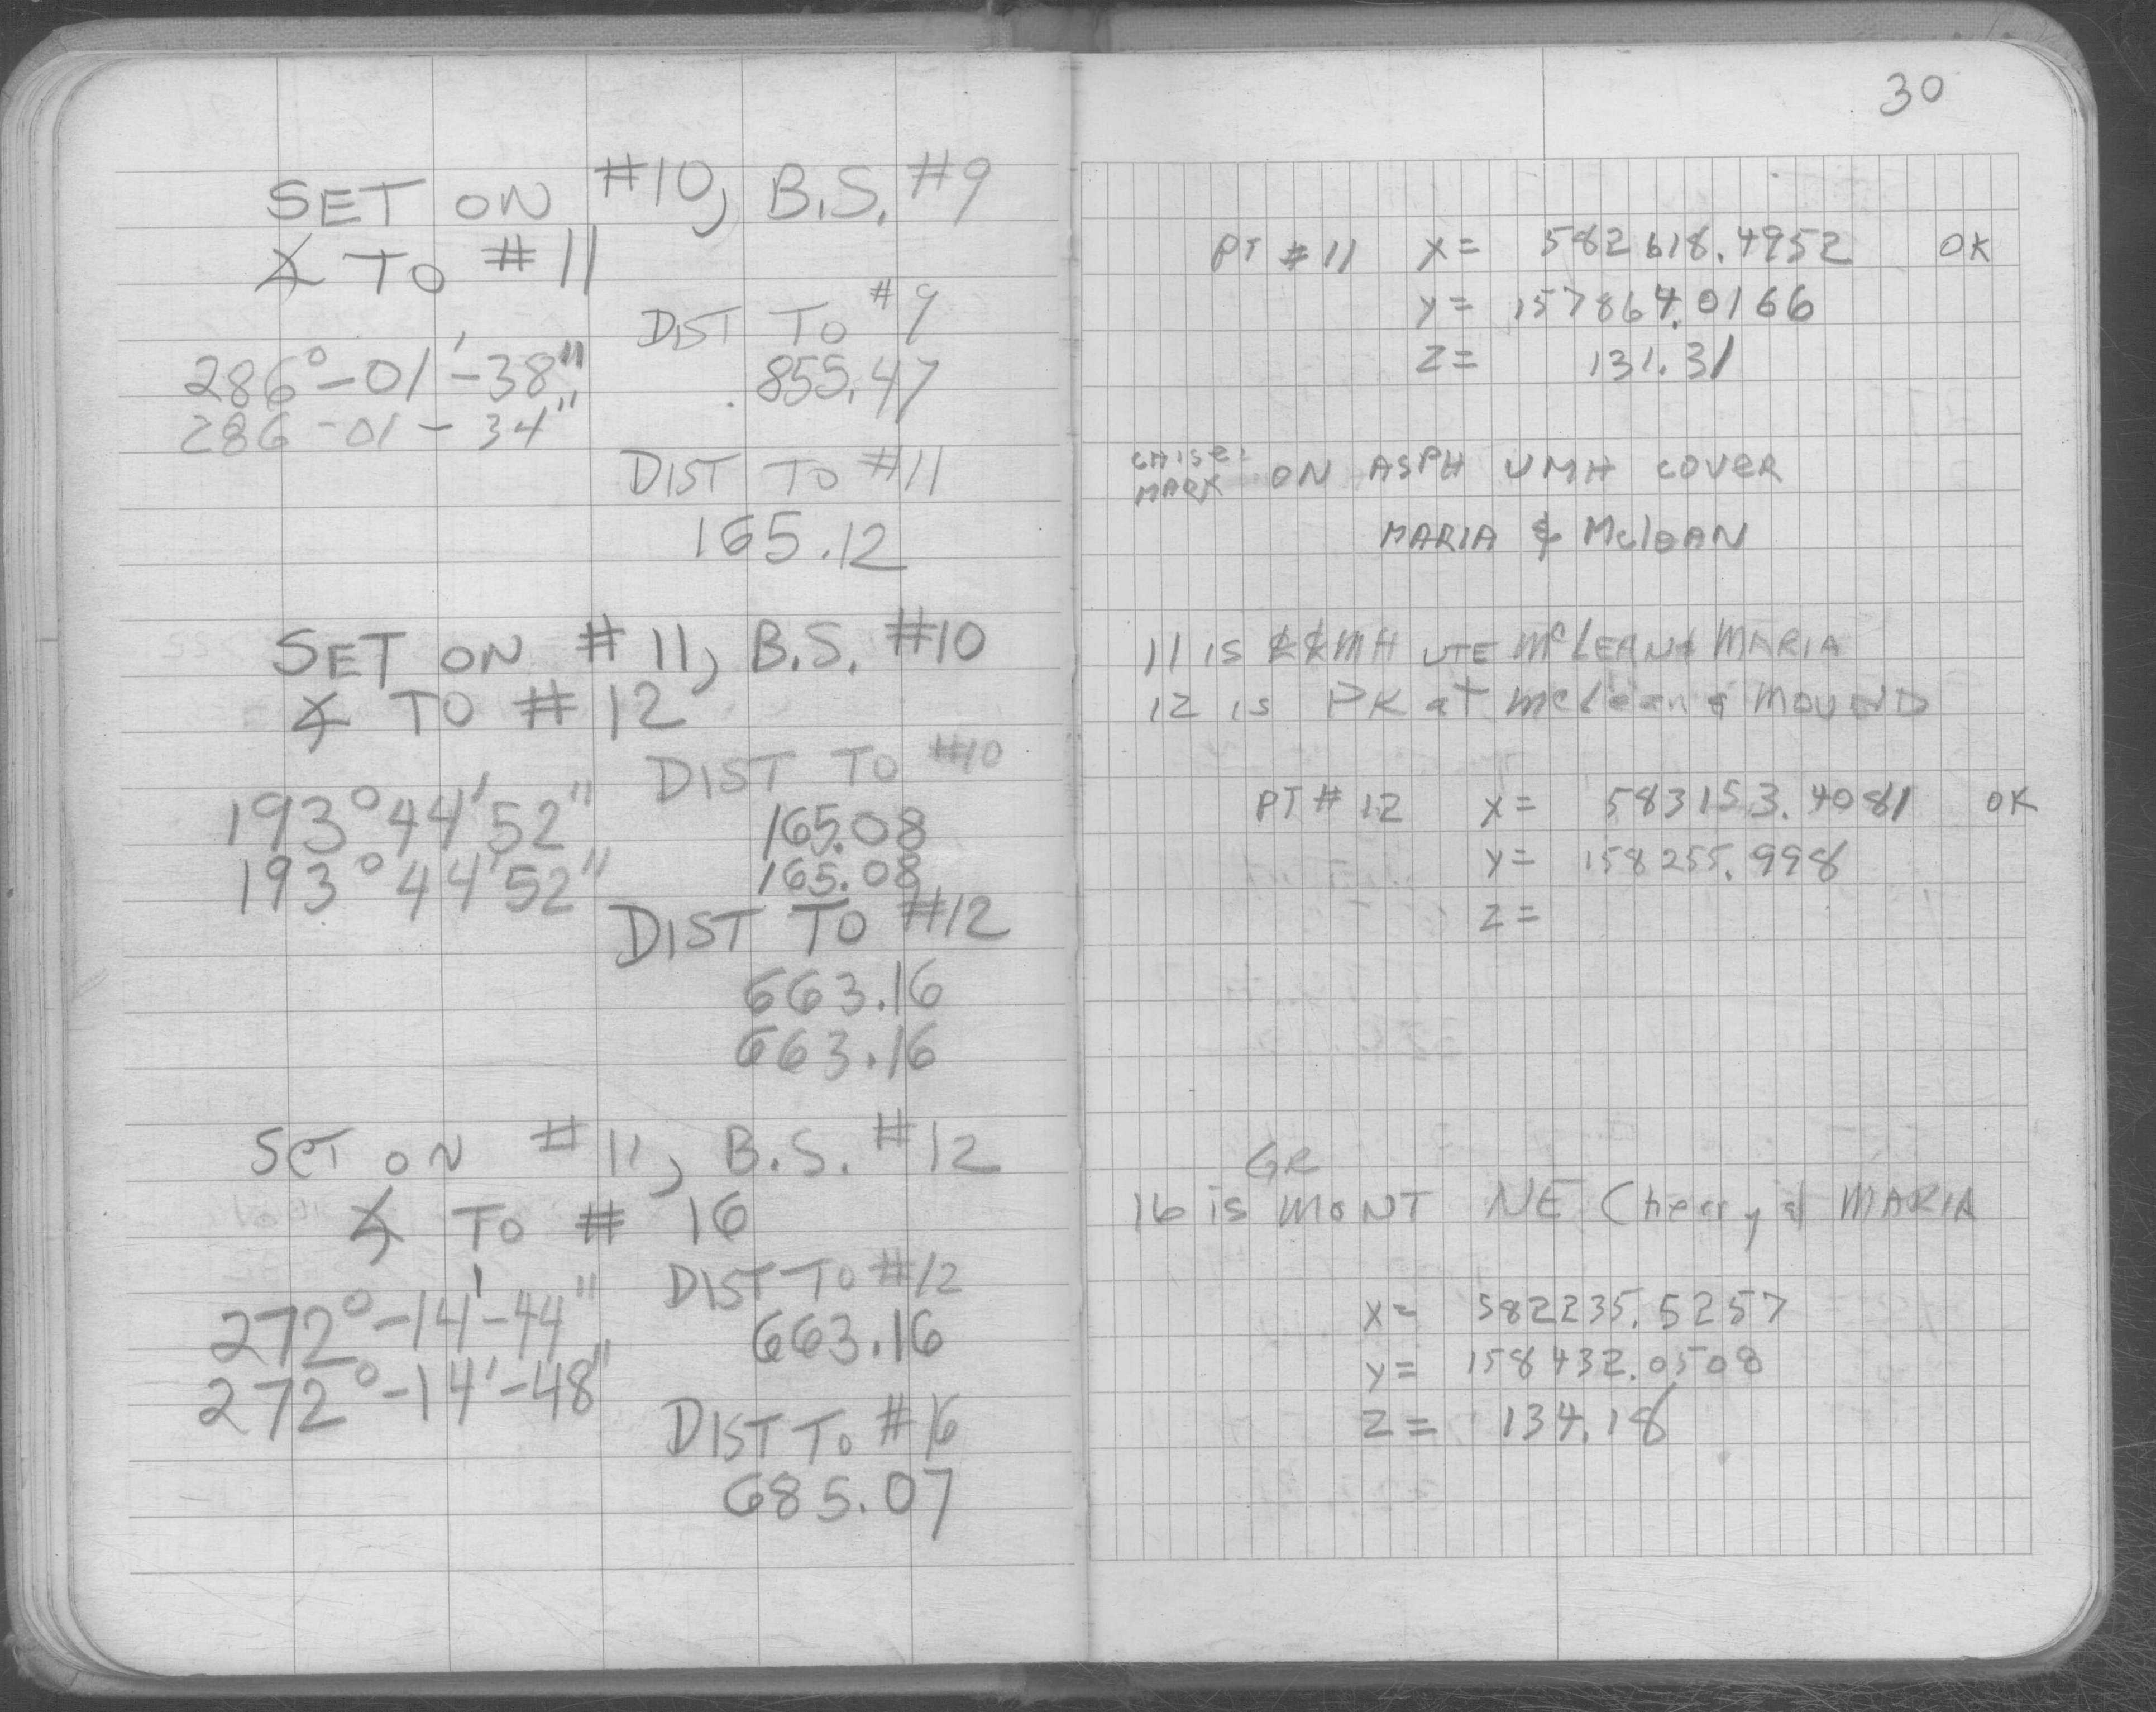 SET ON #10, B.S. #9
∡ TO #11
DIST TO #9
286°-01'-38"
855.47
286-01-34"
DIST TO #11
165.12
SET ON #11, B.S. #10
∡ TO #12
DIST TO #10
193°44'52"
165.08
193°44'52"
165.08
DIST TO #12
663.16
663.16
SET ON #11, B.S. #12
∡ TO # 16
DIST TO #12
272°-14'-44"
663.16
272°-14'-48"
DIST TO #16
685.07
30
PT #11 X= 582618.4952 OK
Y= 157864.0166
Z= 131.31
CHISEL
MARK ON ASPH UMH COVER
MARIA & McleAN
11 is MH UTE McLEAN & MARIA
12 is PK at mclean & MOUND
PT# 12 X= 583153.4081 OK
Y= 158255.998
Z=
GR
16 is MONT NE Cherry & MARIA
X= 582235.5257
Y= 158432.0508
Z= 134.18